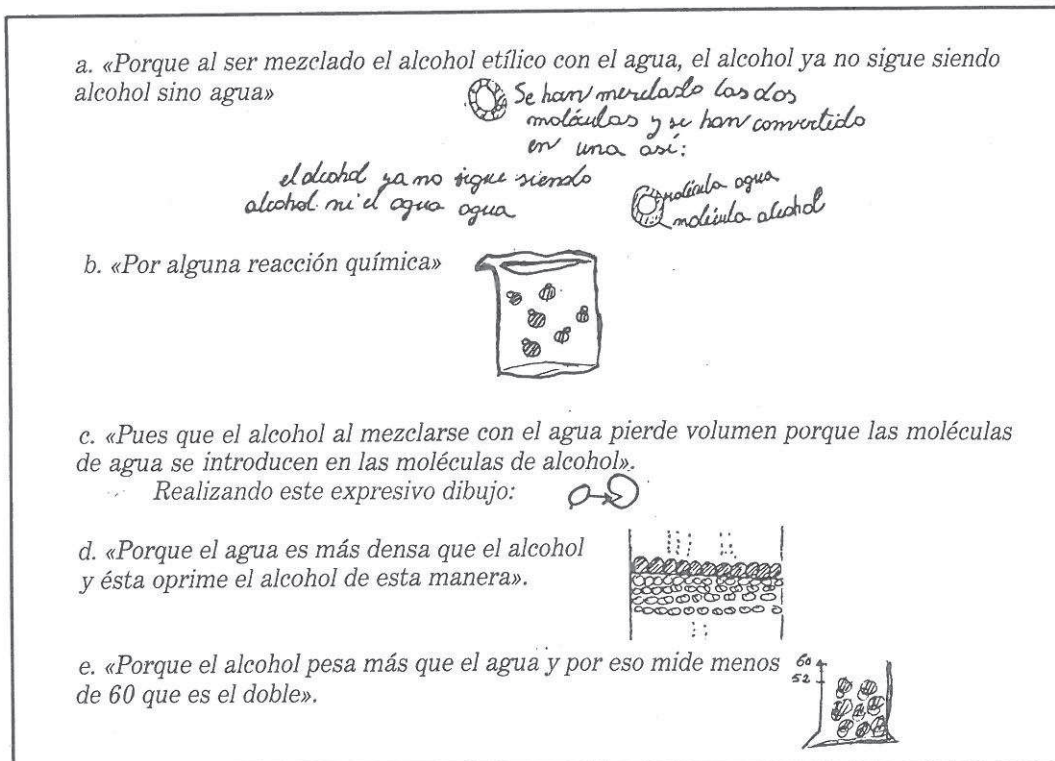 a. «Porque al ser mezclado el alcohol etílico con el agua, el alcohol ya no sigue siendo
alcohol sino agua»
Se han mezclado las dos
moléculas y se han convertido
en una así:
el alcohol ya no sigue siendo
alcohol ni el agua agua
molécula agua
molécula alcohol
b. «Por alguna reacción química»
c. «Pues que el alcohol al mezclarse con el agua pierde volumen porque las moléculas
de agua se introducen en las moléculas de alcohol».
Realizando este expresivo dibujo:
d. «Porque el agua es más densa que el alcohol
y ésta oprime el alcohol de esta manera».
e. «Porque el alcohol pesa más que el agua y por eso mide menos
de 60 que es el doble».
60
52